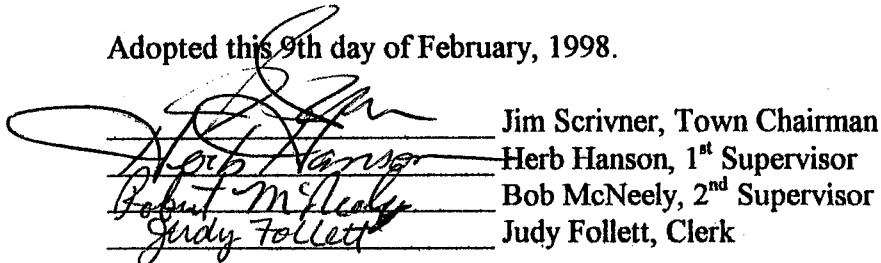 Adopted this 9th day of February, 1998.
Jim Scrivner, Town Chairman
Herb Hanson Herb Hanson, 1st Supervisor
Robert McNeely Bob McNeely, 2nd Supervisor
Judy Follett Judy Follett, Clerk